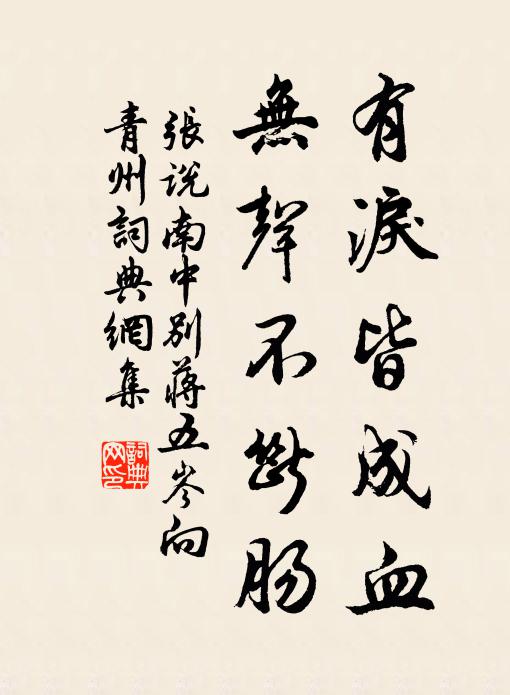 有淚皆成血
無聲不斷腸
張說南中別蔣五岑向
青州詞典網集
詞典
网印